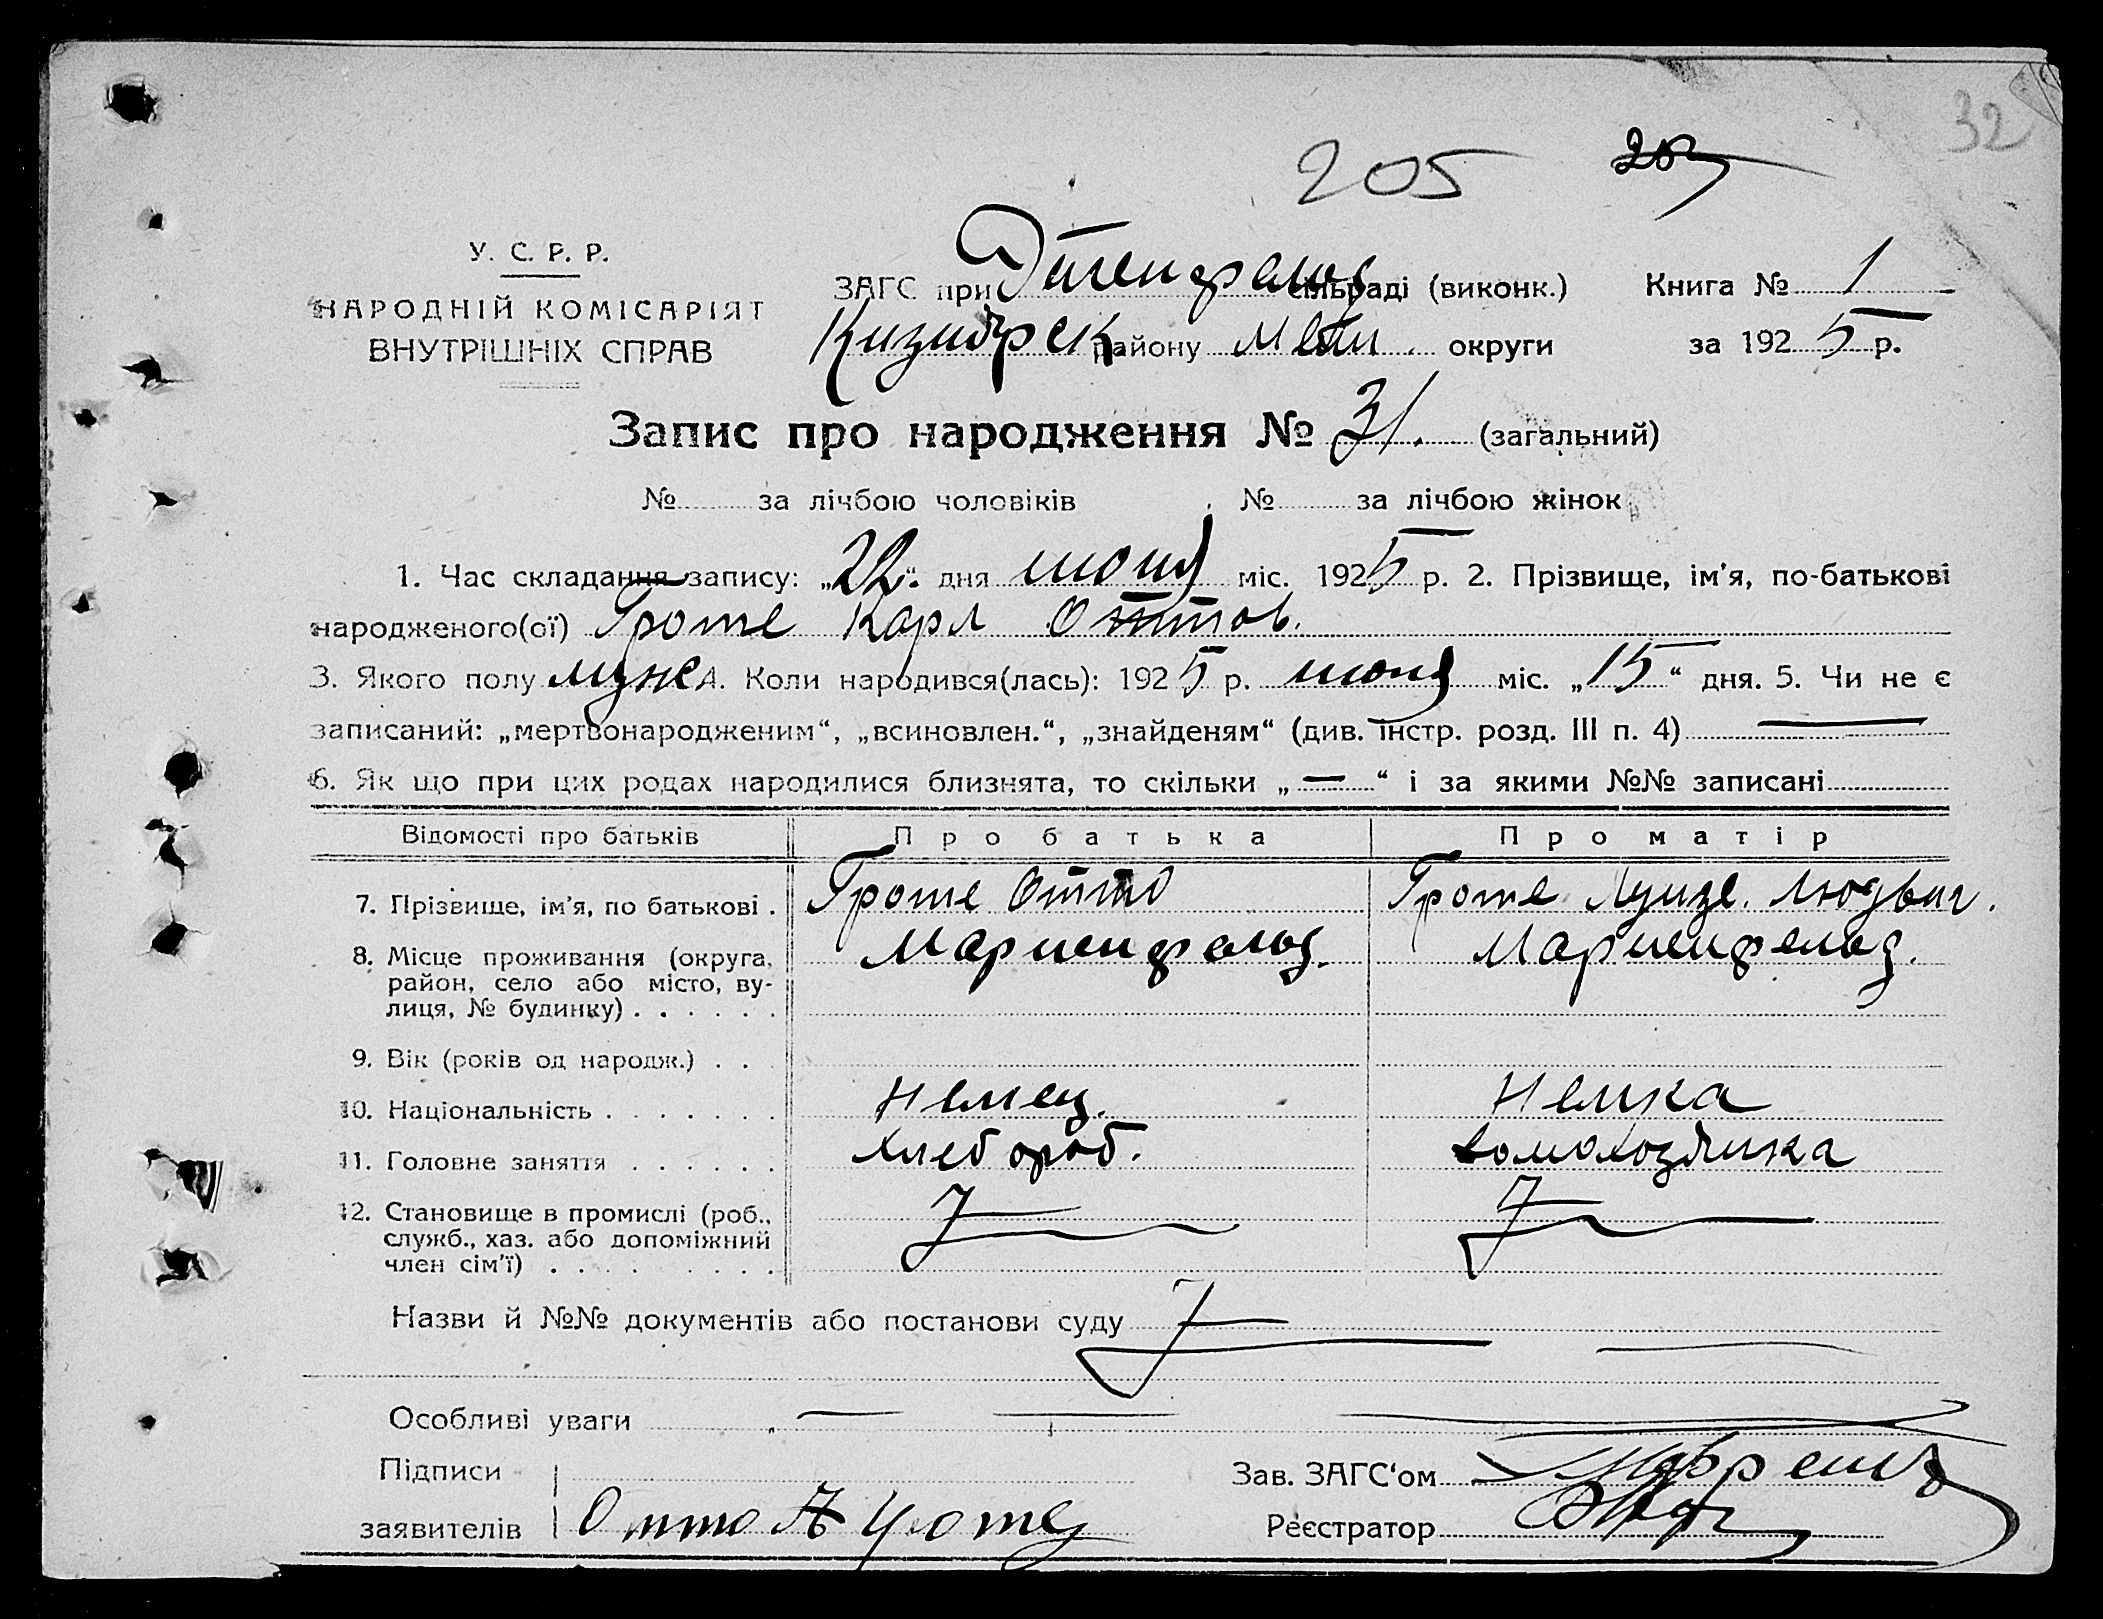 32
205
У. С. Р. Р.
НАРОДНІЙ КОМІСАРІЯТ
ВНУТРІШНІХ СПРАВ
ЗАГС при сільраді (виконк.) Книга № 1
району Мели округи за 1925 р.
Запис про народження № 31. (загальний)
№ за лічбою чоловіків № за лічбою жінок
1. Час складання запису: „22“ дня июня міс. 1925 р. 2. Прізвище, ім'я, по-батькові
народженого(ої) Гроте Карл Оттов.
3. Якого полу муж 4. Коли народився(лась): 1925 р. июня міс. „15“ дня. 5. Чи не є
записаний: „мертвонародженим“, „всиновлен.“, „знайденям“ (див. інстр. розд. III п. 4) —
6. Як що при цих родах народилися близнята, то скільки „—“ і за якими №№ записані
Відомості про батьків Про батька Про матір
7. Прізвище, ім'я, по батькові . Гроте Отто Гроте Луизе. Людвиг.
8. Місце проживання (округа, Мариенфельд. Мариенфельд.
район, село або місто, ву-
лиця, № будинку) . . . . . .
9. Вік (років од народж.) . .
10. Національність . . . . . . . немец. немка
11. Головне заняття . . . . . . хлебороб. домохозяйка
12. Становище в промислі (роб.,
служб., хаз. або допоміжний
член сім'ї) . . . . . . . .
Назви й №№ документів або постанови суду
Особливі уваги — —
Підписи Зав. ЗАГС'ом
заявителів Отто Гроте Реєстратор